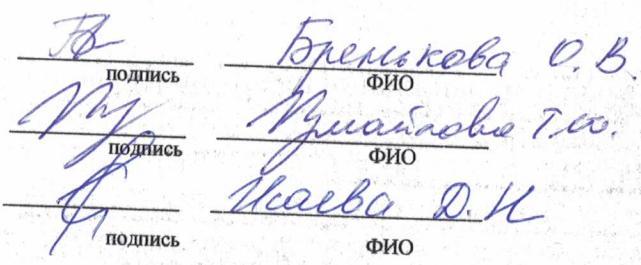 Бренькова О.В.
подпись ФИО
Измайлова Т.Ю.
подпись ФИО
Исаева Д.Н
подпись ФИО